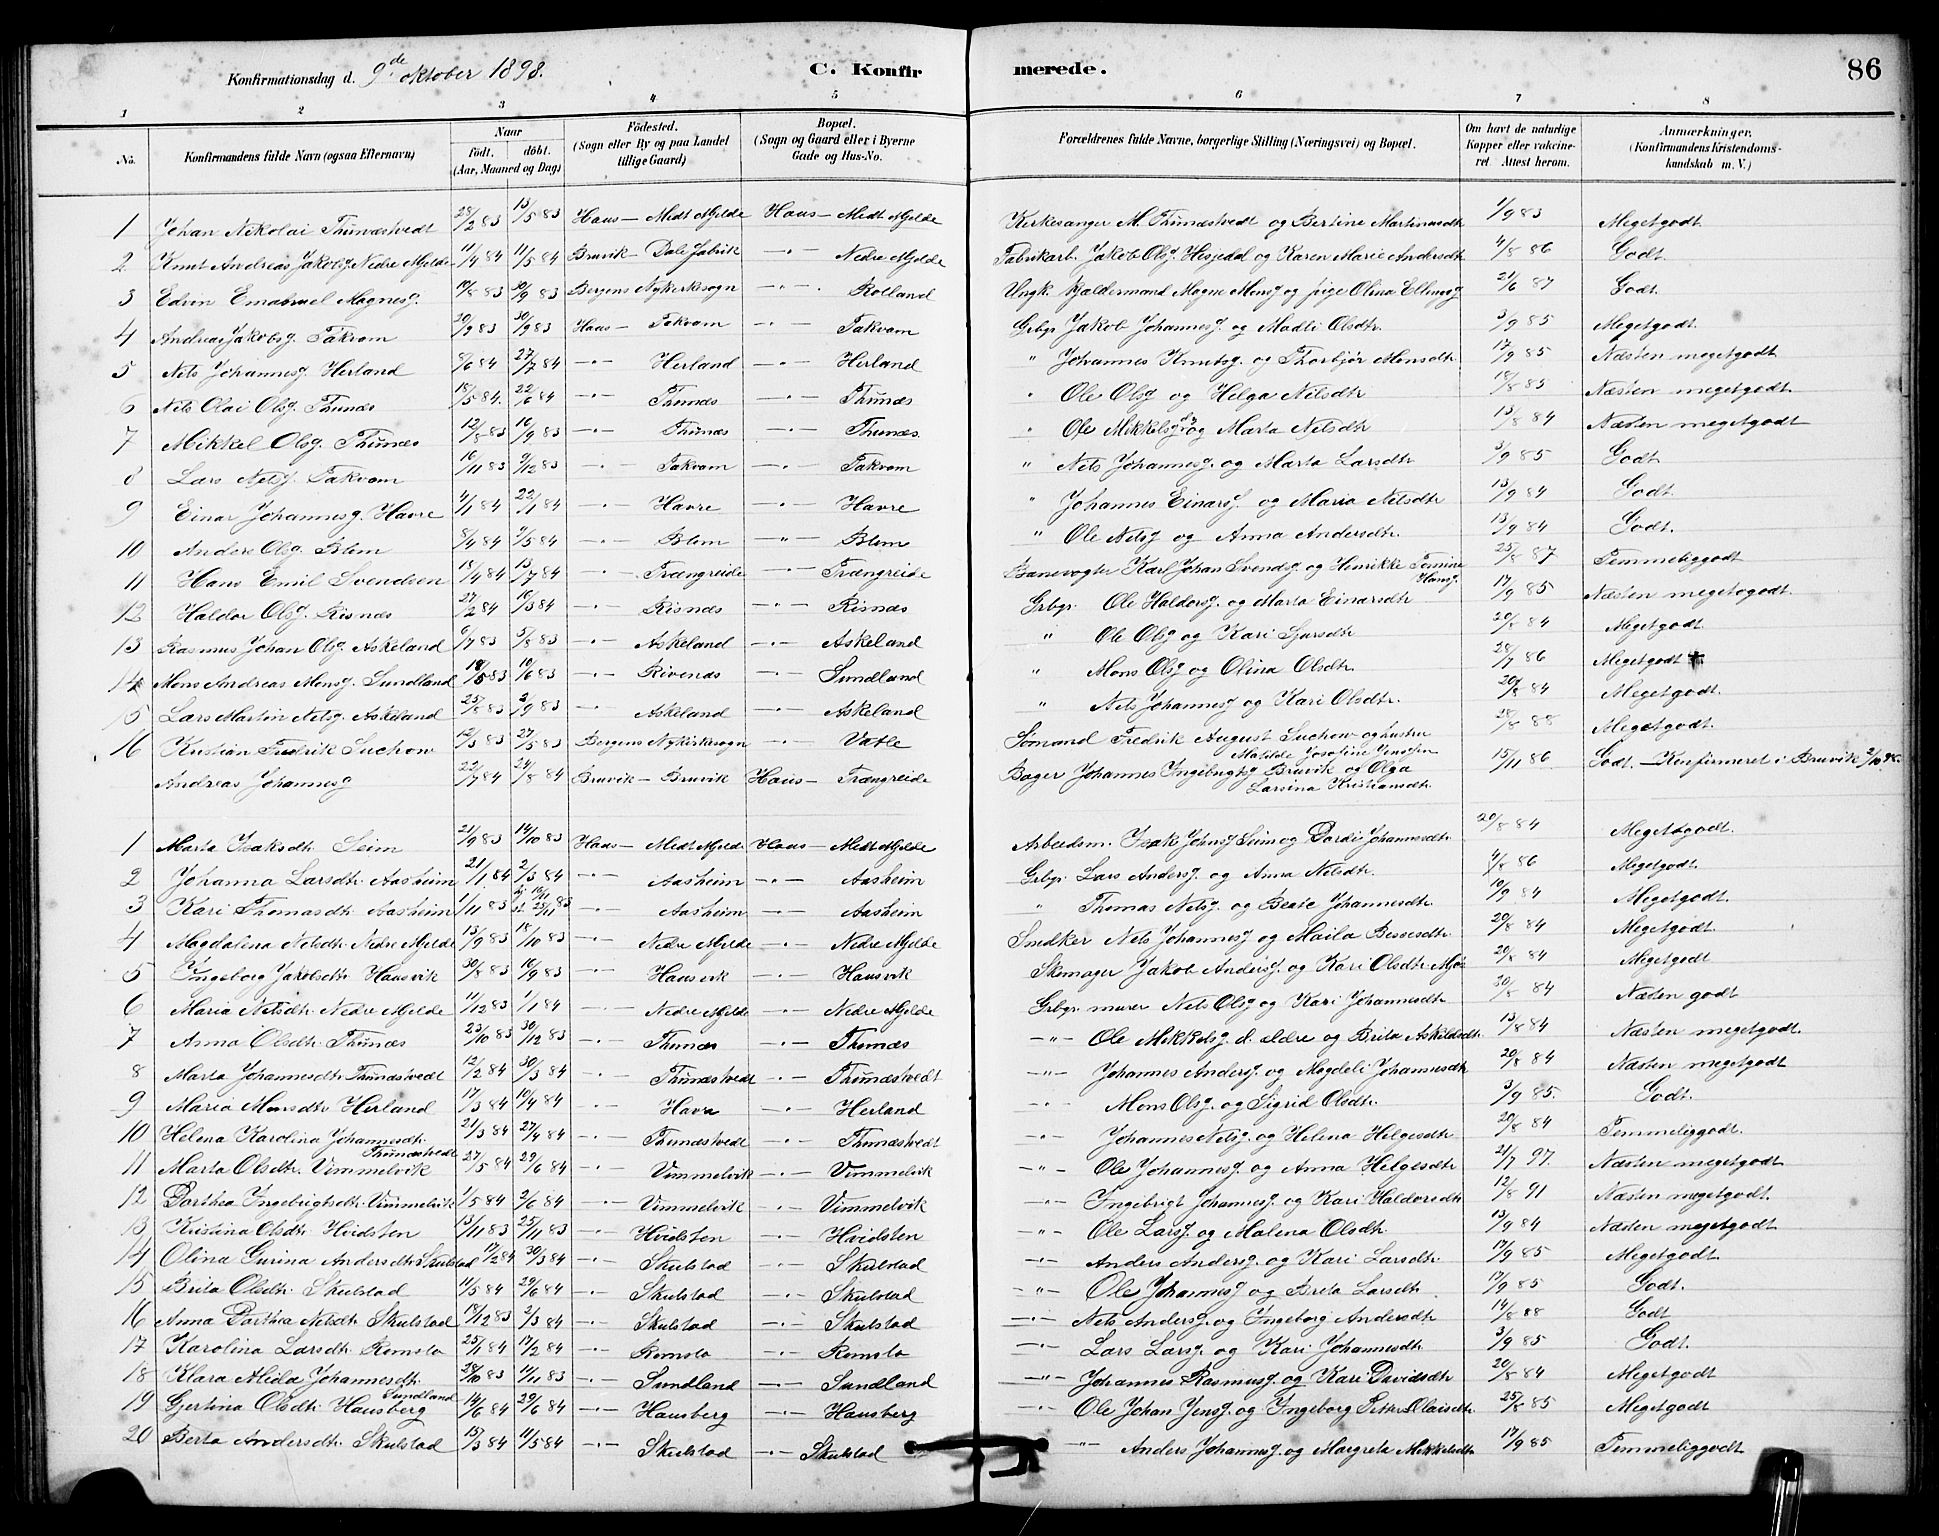 Konfirmationsdag d. 9de oktober 1898.
C. Konfir
merede.
86
1 2 3 4 5 6 7 8
No.
Konfirmandens fulde Navn (ogsaa Efternavn)
Naar
födt. döbt.
(Aar, Maaned og Dag)
Födested.
(Sogn eller By og paa Landet
tillige Gaard)
Bopæl.
(Sogn og Gaard eller i Byerne
Gade og Hus-No.
Forældrenes fulde Navne, borgerlige Stilling (Næringsvei) og Bopæl.
Om havt de naturlige
Kopper eller vakcine-
ret. Attest herom.
Anmærkninger.
(Konfirmandens Kristendoms-
kundskab m. V.)
1 Johan Nikolai Thunæstvedt 28/2 83 13/5 83 Haus – Midt Mjelde Haus – Midt Mjelde Kirkesanger M. Thunæstvedt og Bertine Martinusdtr 1/9 83 Megetgodt.
2 Knut Andreas Jakobsg. Nedre Mjelde 11/4 84 11/5 84 Bruvik – Dale fabrik –"– Nedre Mjelde Fabrikarb. Jakob Olsg. Hesjedal og Karen Marie Andersdtr 4/8 86 Godt.
3 Edvin Emanuel Magnesg. 19/8 83 30/9 83 Bergens Nykirkesogn –"– Rolland Ungk. kjældermand Magne Monsg og pige Olina Ellingsg 21/6 87 Godt.
4 Andreas Jakobsg. Takvam 20/9 83 30/9 83 Haus – Takvam –"– Takvam Grbgr. Jakob Johannesg. og Madli Olsdtr. 3/9 85 Megetgodt.
5 Nels Johannesg. Herland 8/6 84 27/7 84 –"– Herland –"– Herland " Johannes Knutsg. og Thorbjør Monsdtr. 17/9 85 Næsten megetgodt
6 Nels Olai Olsg. Thunæs 18/5 84. 22/6 84 –"– Thunæs –"– Thunæs " Ole Olsg og Helga Nelsdtr 18/8 85 Næsten megetgodt.
7 Mikkel Olsg. Thunæs 12/8 83 16/9 83 –"– Thunæs –"– Thunæs. " Ole Mikkelsg. dy og Marta Nelsdtr 13/8 84 Næsten megetgodt
8 Lars Nelsg. Takvam 16/11 83 9/12 83 –"– Takvam –"– Takvam " Nels Johannesg. og Marta Larsdtr 3/9 85 Godt.
9 Einar Johannesg. Havre 4/1 84 22/1 84 –"– Havre –"– Havre " Johannes Einarsg. og Maria Nelsdtr 13/9 84 Godt.
10 Anders Olsg. Blem 8/4 84 4/5 84 –"– Blem –"– Blem " Ole Nelsg og Anna Andersdtr. 13/9 84 Godt.
11 Hans Emil Svendsen 18/4 84 13/7 84 –"– Trængreide –"– Trængreide Banevogter Karl Johan Svendsg og Henrikke Tomine Hansg. 25/8 87 Temmeliggodt
12 Haldor Olsg. Risnæs 27/2 84 16/3 84 –"– Risnæs –"– Risnæs Grbgr. Ole Haldorsg. og Marta Einarsdtr 17/9 85 Næsten megetgodt.
13 Rasmus Johan Olsg. Askeland 6/7 83 5/8 83 –"– Askeland –"– Askeland " Ole Olsg og Kari Sjursdtr 20/8 84 Megetgodt.
14 Mons Andreas Monsg. Sundland 18/5 83 10/6 83 –"– Rivenæs –"– Sundland " Mons Olsg og Olina Olsdtr. 28/7 86 Megetgodt
15 Lars Martin Nelsg. Askeland 25/8 83 2/9 83 –"– Askeland –"– Askeland " Nels Johannesg og Kari Olsdtr. 20/8 84 Megetgodt.
16 Kristian Fredrik Suchow 12/3 83 27/5 83 Bergens Nykirkesogn –"– Vatle Sømand Fredrik August Suchow og hustru Matilde Josefine Jensen 28/8 88 Megetgodt.
Andreas Johannesg 22/7 84 24/8 84 Bruvik – Bruvik Haus – Trængreide Bager Johannes Ingebrigtsg Bruvik og Olga Larsina Kristiansdtr. 15/11 86 Godt. – Konfirmeret i Bruvik 2/10 98.
1 Marta Isaksdtr Seim 21/9 83 14/10 83 Haus – Midt Mjelde Haus – Midt Mjelde Arbeidsm. Isak Johnsg Seim og Dordei Johannesdtr. 20/8 84 Megetgodt.
2 Johanna Larsdtr. Aasheim 21/1 84 2/3 84 –"– Aasheim –"– Aasheim Grbgr. Lars Andersg. og Anna Nelsdtr. 4/8 86 Megetgodt.
3 Kari Thomasdtr. Aasheim 1/11 83 hj. 16/11 st. 25/11 83 –"– Aasheim –"– Aasheim " Thomas Nelsg. og Beate Johannesdtr. 10/9 84 Megetgodt.
4 Magdalena Nelsdtr. Nedre Mjelde 13/9 83 18/10 83 –"– Nedre Mjelde –"– Nedre Mjelde Snedker Nels Johannesg og Maila Bessesdtr. 20/8 84 Megetgodt.
5 Ingeborg Jakobsdtr. Hausvik 30/8 83 16/9 83 –"– Hausvik –"– Hausvik Skomager Jakob Andersg. og Kari Olsdtr. 20/8 84 Megetgodt
6 Maria Nelsdtr. Nedre Mjelde 11/12 83 1/1 84 –"– Nedre Mjelde –"– Nedre Mjelde Grbgr. murer Nels Olsg og Kari Johannesdtr 30/8 84 Næsten godt
7 Anna Olsdtr. Thunæs 23/10 83 30/12 83 –"– Thunæs –"– Thunæs –"– Ole Mikkelsg. d. ældre og Brita Askeldsdtr. 13/8 84 Næsten megetgodt.
8 Marta Johannesdtr. Thunæstvedt 12/2 84 30/3 84 –"– Thunæstvedt –"– Thunæstvedt –"– Johannes Andersg. og Magdeli Johannesdtr 20/8 84 Næsten megetgodt
9 Maria Monsdtr Herland 17/3 84 14/4 84 –"– Havn –"– Herland –"– Mons Olsg. og Sigrid Olsdtr. 3/9 85. Godt.
10 Helena Karolina Johannesdtr. Thunæstvedt 21/3 84 27/4 84 –"– Thunæstvedt –"– Thunæstvedt –"– Johannes Nelsg. og Helena Helgesdtr 20/8 84 Temmeliggodt.
11 Marta Olsdtr. Vimmelvik 27/5 84 29/6 84 –"– Vimmelvik –"– Vimmelvik –"– Ole Johannesg. og Anna Helgesdtr. 21/7 97. Næsten megetgodt
12 Dorthea Ingebrigtsdtr. Vimmelvik 1/5 84 2/6 84 –"– Vimmelvik –"– Vimmelvik –"– Ingebrigt Johannesg. og Kari Haldorsdtr 12/8 91 Næsten megetgodt.
13 Kristina Olsdtr. Hvidsten 13/11 83 25/11 83 –"– Hvidsten –"– Hvidsten –"– Ole Larsg. og Malena Olsdtr. 13/9 84 Næsten megetgodt
14 Olina Gurina Andersdtr. Skulstad 17/2 84 30/3 84 –"– Skulstad –"– Skulstad –"– Anders Andersg. og Kari Larsdtr. 17/9 85 Megetgodt.
15 Brita Olsdtr. Skulstad 11/5 84 29/6 84 –"– Skulstad –"– Skulstad –"– Ole Johannesg og Brita Larsdtr. 17/9 85 Godt.
16 Anna Dorthea Nelsdtr. Skulstad 19/12 83 2/3 84 –"– Skulstad –"– Skulstad –"– Nels Andersg. og Ingeborg Andersdtr 14/8 88 Godt
17 Karolina Larsdtr. Romslo 25/1 84 17/2 84 –"– Romslo –"– Romslo –"– Lars Larsg. og Kari Johannesdtr. 3/9 85 Godt.
18 Klara Alida Johannesdtr. Sundland 28/10 83 11/11 83 –"– Sundland –"– Sundland –"– Johannes Rasmusg. og Kari Davidsdtr 20/8 84 Megetgodt
19 Gjertina Olsdtr. Hausberg 14/6 84 29/6 84 –"– Hausberg –"– Hausberg –"– Ole Johan Jensg. og Ingeborg Petter Olaisdtr. 25/8 85 Megetgodt
20 Berta Andersdtr. Skulstad 15/3 84 11/5 84 –"– Skulstad –"– Skulstad –"– Anders Johannesg. og Margreta Mikkelsdtr 17/9 85 Temmeliggodt